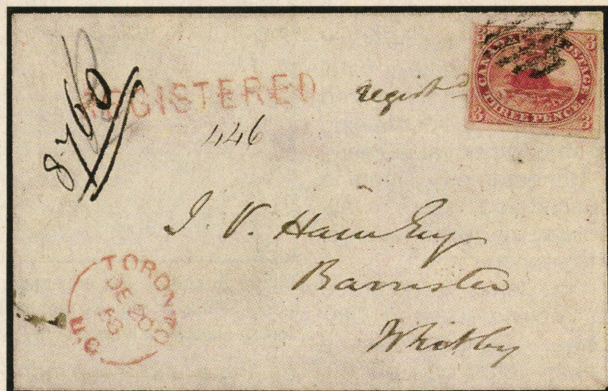 8760
REGISTERED
regist^d
446
CANADA POSTAGE
THREE PENCE
3 3 3 3
J. V. Ham Esq
Barrister
Whitby
TORONTO
DE 20
U.C.